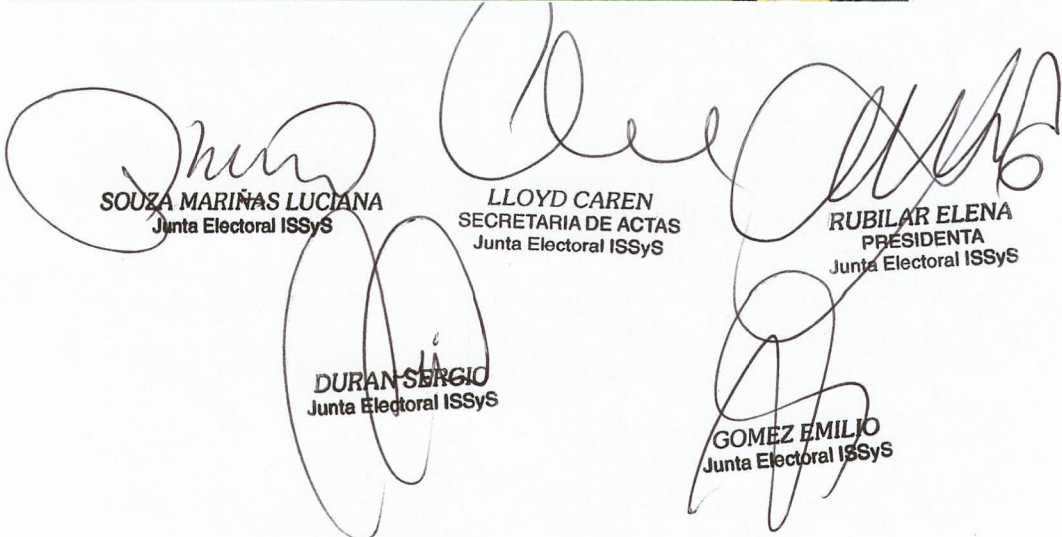 SOUZA MARIÑAS LUCIANA
Junta Electoral ISSyS
LLOYD CAREN
SECRETARIA DE ACTAS
Junta Electoral ISSyS
RUBILAR ELENA
PRESIDENTA
Junta Electoral ISSyS
DURAN SERGIO
Junta Electoral ISSyS
GOMEZ EMILIO
Junta Electoral ISSyS